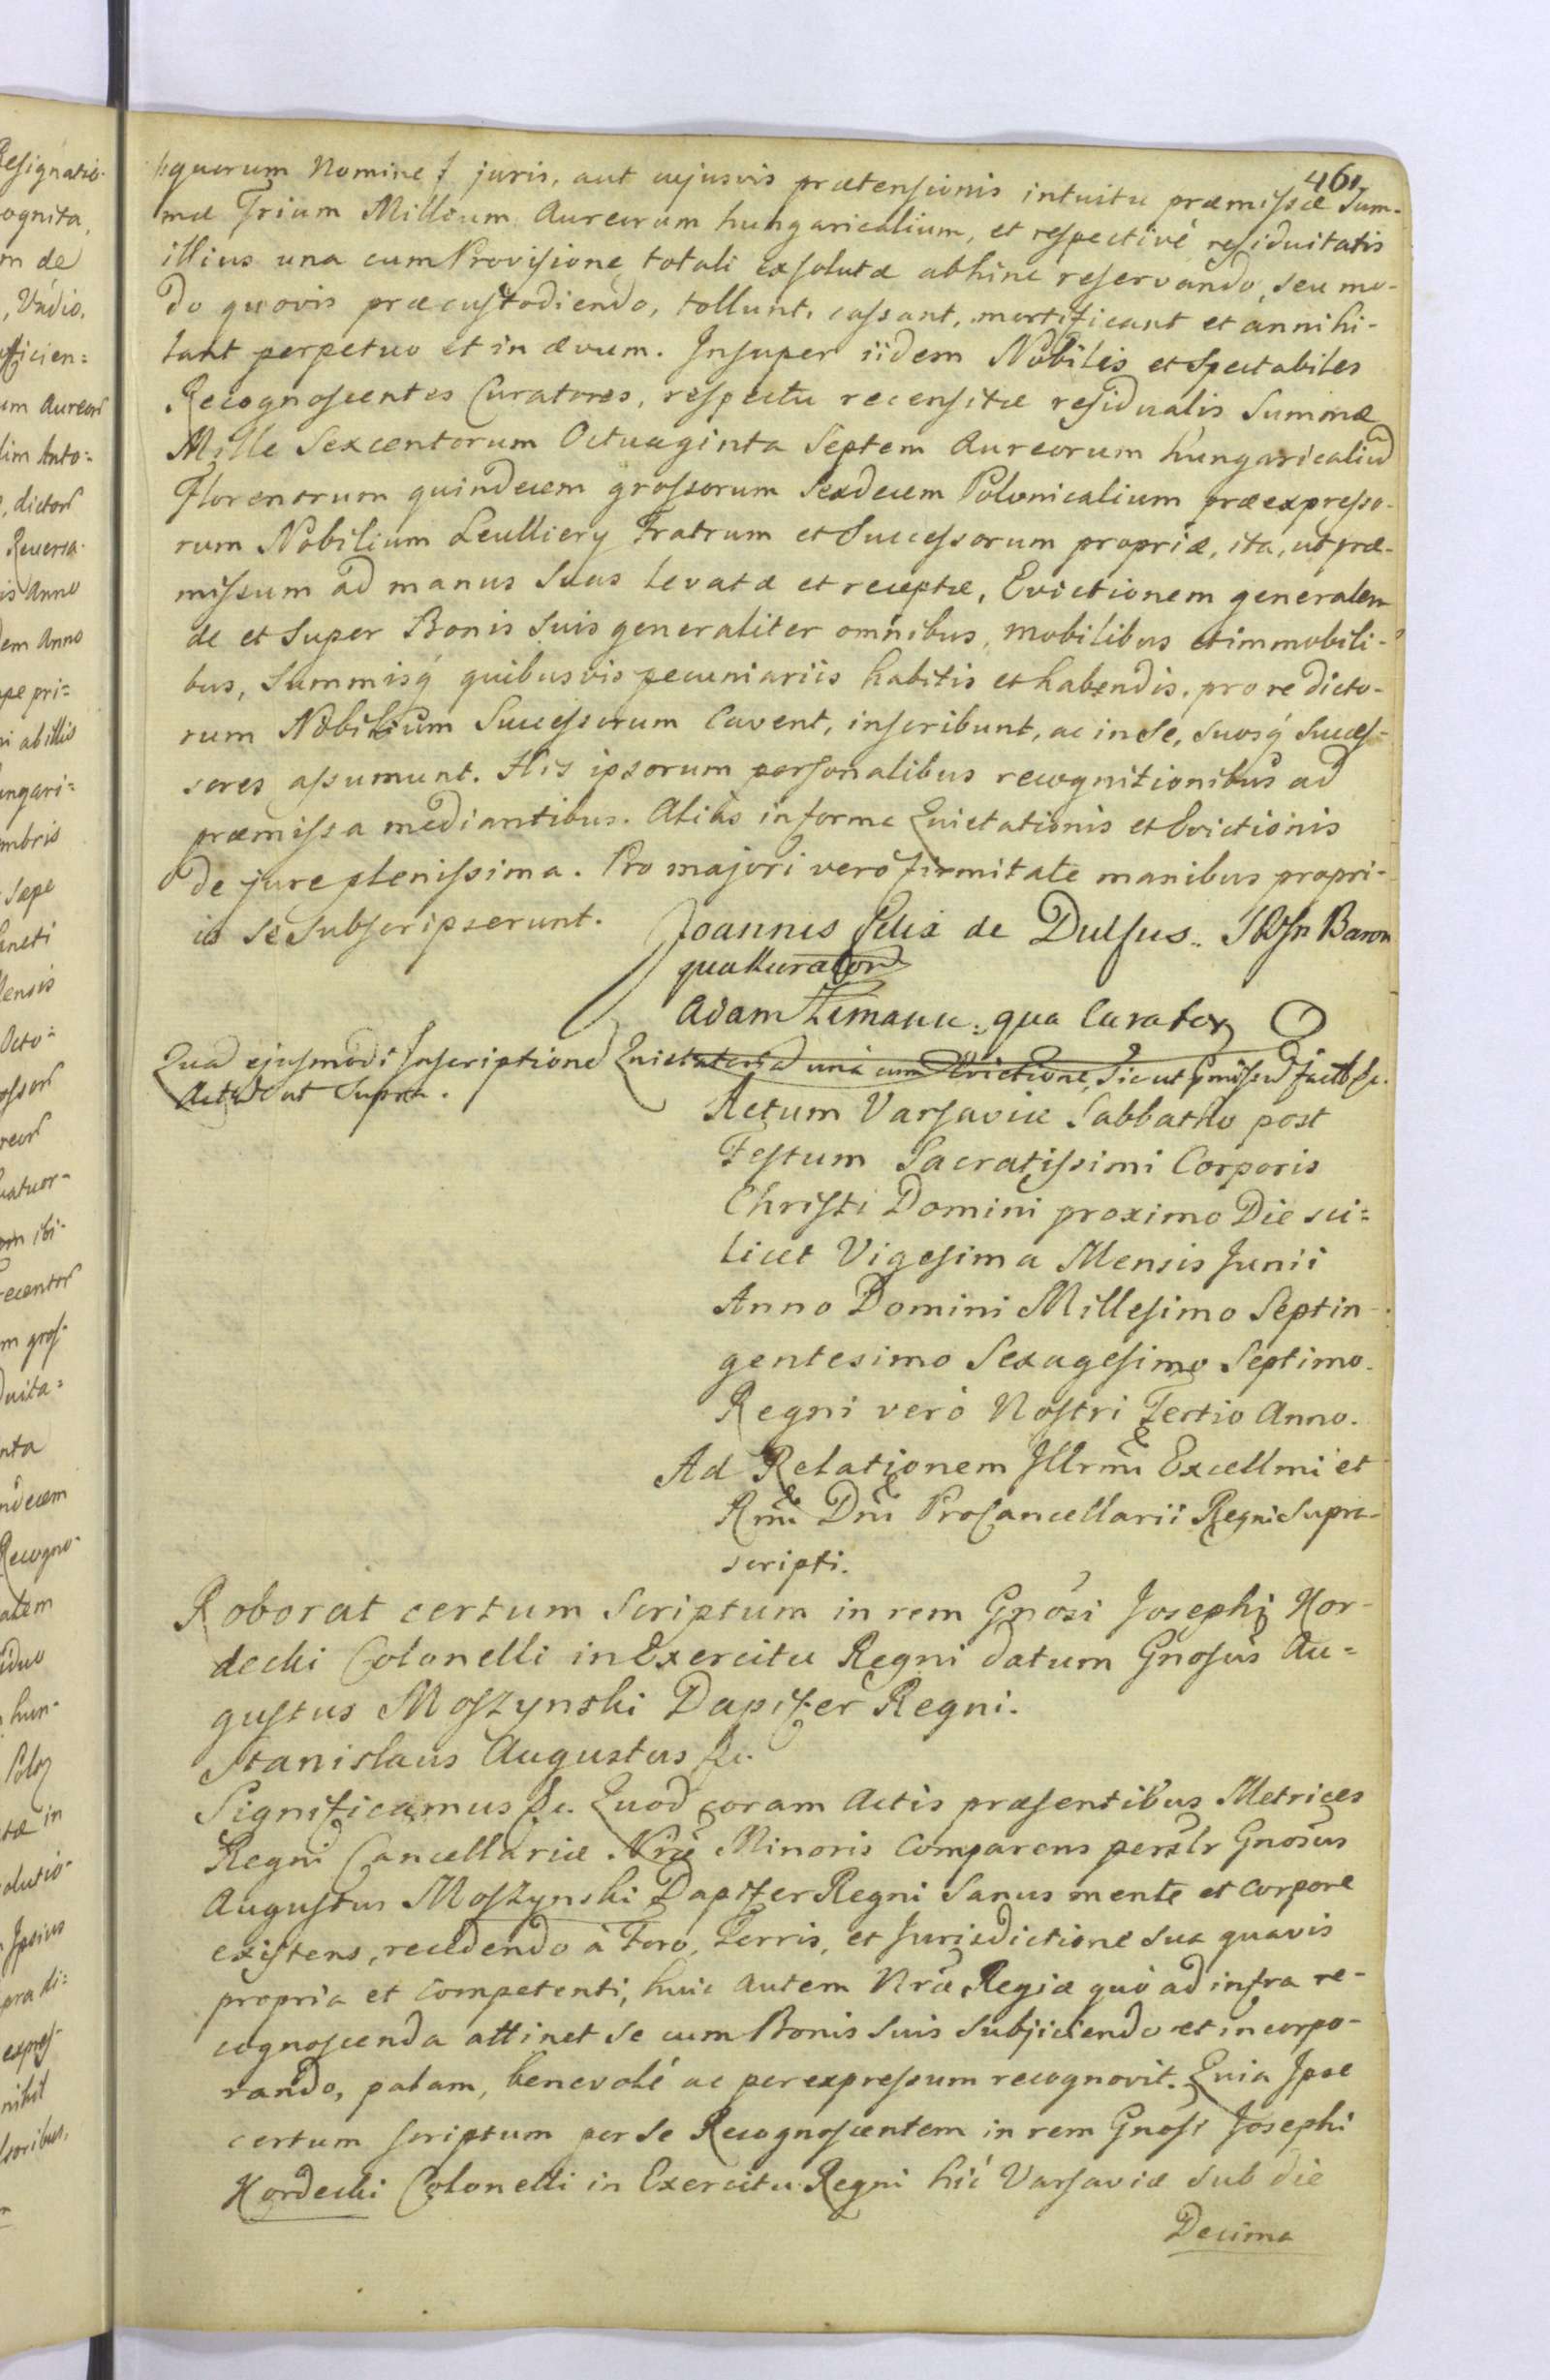 461.
quorum Nomine juris, aut cujusvis prætensionis intuitu præmissæ Sum-
mæ Trium Millium Aureorum hungaricalium, et respectivé residuitatis
illius una cum Provisione totali exsolutæ abhinc reservando, seu mo-
do quovis præcustodiendo, tollunt, cassant, mortificant et annihi-
lant perpetuo et in ævum. Insuper iidem Nobiles et Spectabiles
Recognoscentes Curatores, respectu recensitæ residualis Summæ
Mille Sexcentorum Octuaginta Septem Aureorum hungaricaliu
Florenorum quindecem grossorum Sexdecem Polonicalium præexpresso-
rum Nobilium Leulliery Fratrum et Successorum propriæ, ita, ut præ-
missum ad manus Suas levatæ et receptæ, Evictionem generalem
de et Super Bonis Suis generaliter omnibus, mobilibus et immobili-
bus, Summisq quibusvis pecuniariis habitis et habendis, pro re dicto-
rum Nobilium Successorum Cavent, inscribunt, ac in Se, Suosq Succes-
sores assumunt. His ipsorum personalibus recognitionibus ad
præmissa mediantibus. Alias in forma Quietationis et Evictionis
de jure plenissima. Pro majori vero firmitate manibus propri-
is se subscripserunt. Joannes Felix de Dulfus Baron
qua Kurator
Adam Zimann qua Curator
Qua ejusmodi Inscriptione Quietatoria una cum Evictione, Sicut pmissu facto &c.
Actu ut Supra.
Actum Varsaviæ Sabbatho post
Festum Sacratissimi Corporis
Christi Domini proximo Die sci=
licet Vigesima Mensis Junii
Anno Domini Millesimo Septin-
gentesimo Sexagesimo Septimo.
Regni veró Nostri Tertio Anno.
Ad Relationem Illrmi Excellmi et
Rmi Dni ProCancellarii Regni Supra-
scripti.
Roborat certum Scriptum in rem Gnosi Josephi Hor-
decki Colonelli in Exercitu Regni datum Gnosus Au=
gustus Moszynski Dapifer Regni.
Stanislaus Augustus &c.
Significamus &c. Quod coram Actis præsentibus Metrices
Regni Cancellariæ Nræ Minoris Comparens persslr Gnosus
Augustus Moszynski Dapifer Regni Sanus mente et corpore
existens, recedendo à Foro, Terris, et Jurisdictione sua quavis
propria et competenti, huic autem Nræ Regiæ quó ad infra re-
cognoscenda attinet se cum Bonis suis subjiciendo et incorpo-
rando, palam, benevolé ac per expressum recognovit. Quia Ipse
certum scriptum per Se Recognoscentem in rem Gnosi Josephi
Hordecki Colonelli in Exercitu Regni híc Varsaviæ sub die
Decima